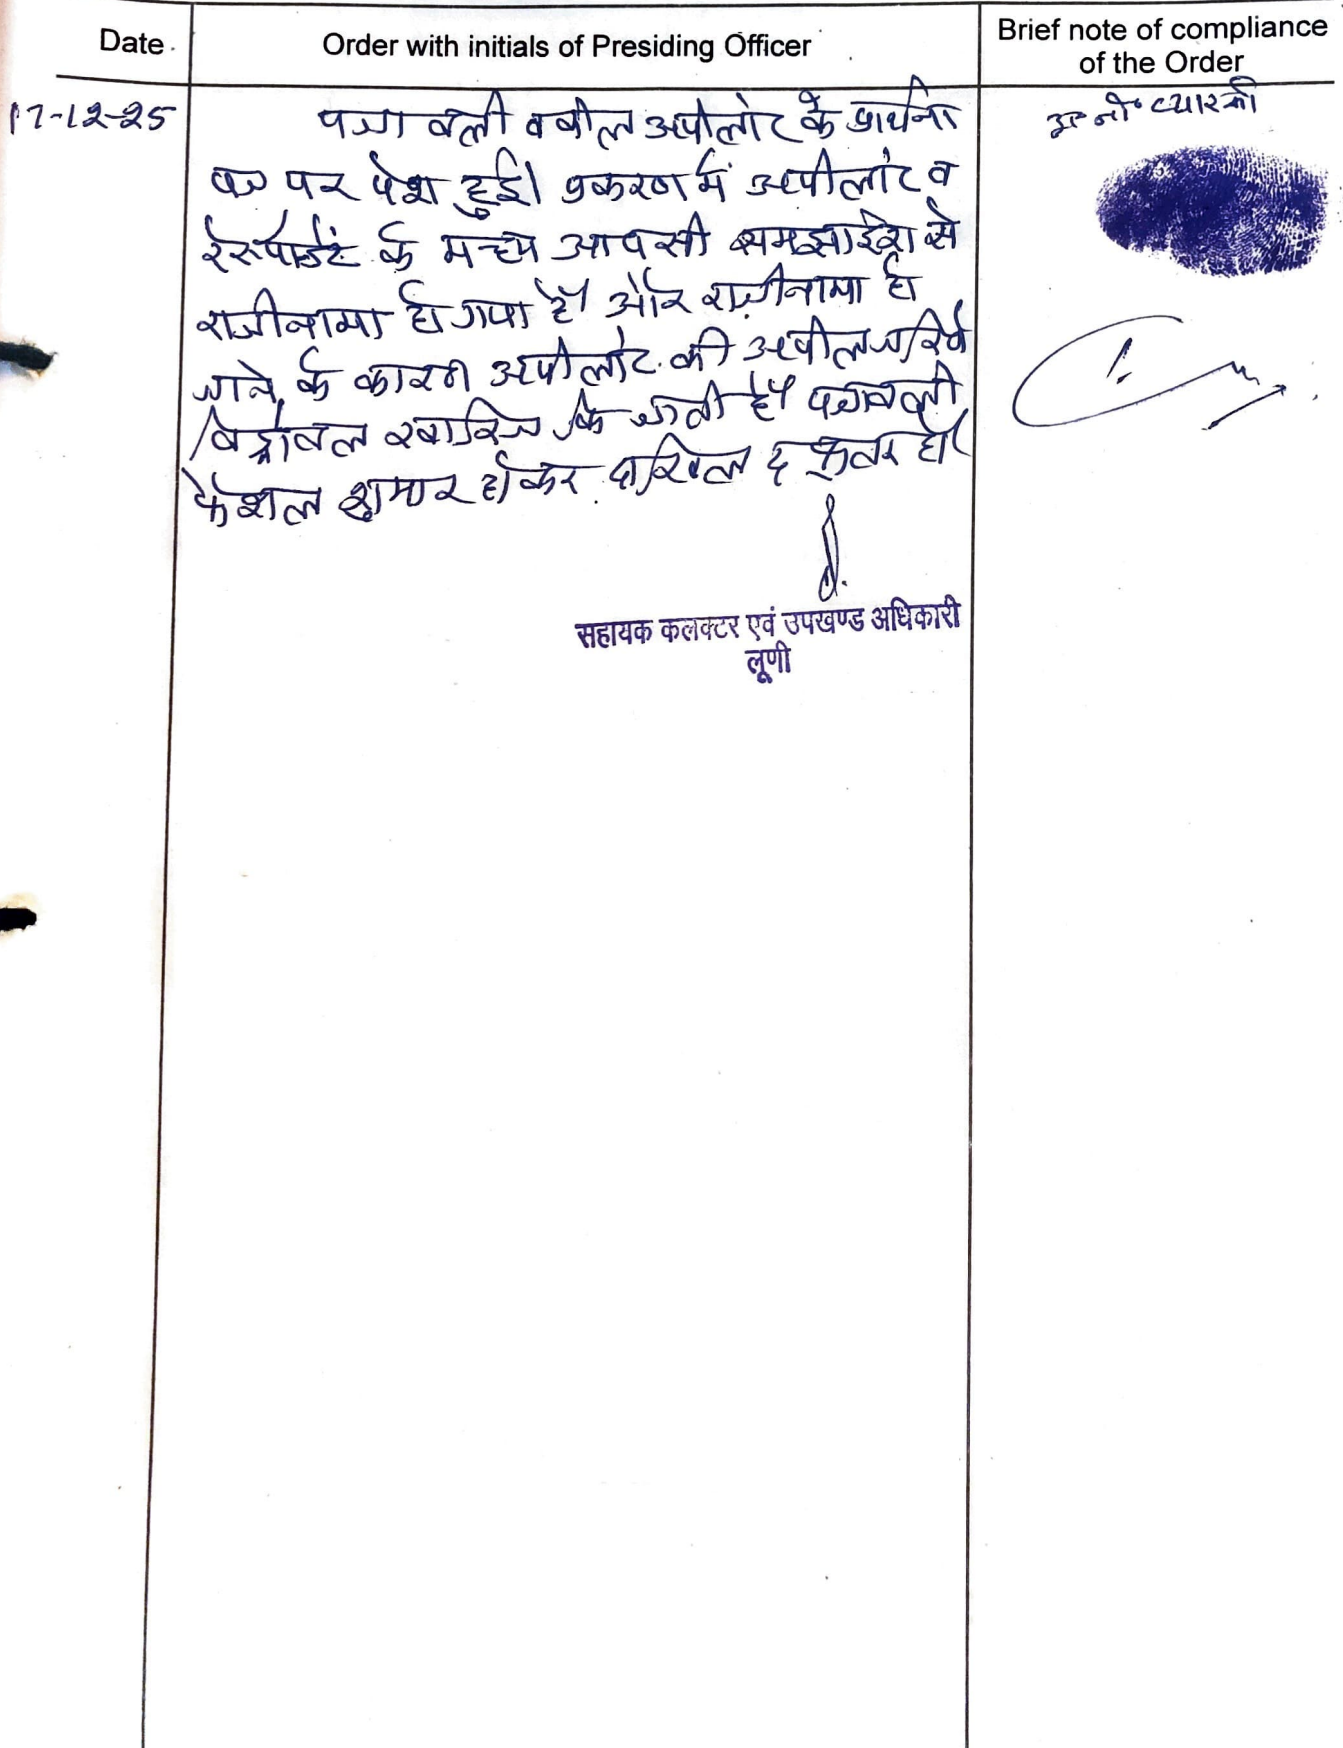 Date
Order with initials of Presiding Officer
Brief note of compliance
of the Order
17-12-25
पत्रावली वकील अपीलांट के प्रार्थना
पत्र पर पेश हुई। प्रकरण में अपीलांट व
रेस्पोडेंट के मध्य आपसी समझाईश से
राजीनामा हो गया है। और राजीनामा हो
जाने के कारण अपीलांट की अपील जरिये
विड्रोवल खारिज कि जाती है। पत्रावली
फैशल शुमार होकर दाखिल दफ्तर हो।
सहायक कलक्टर एवं उपखण्ड अधिकारी
लूणी
अ० नी०